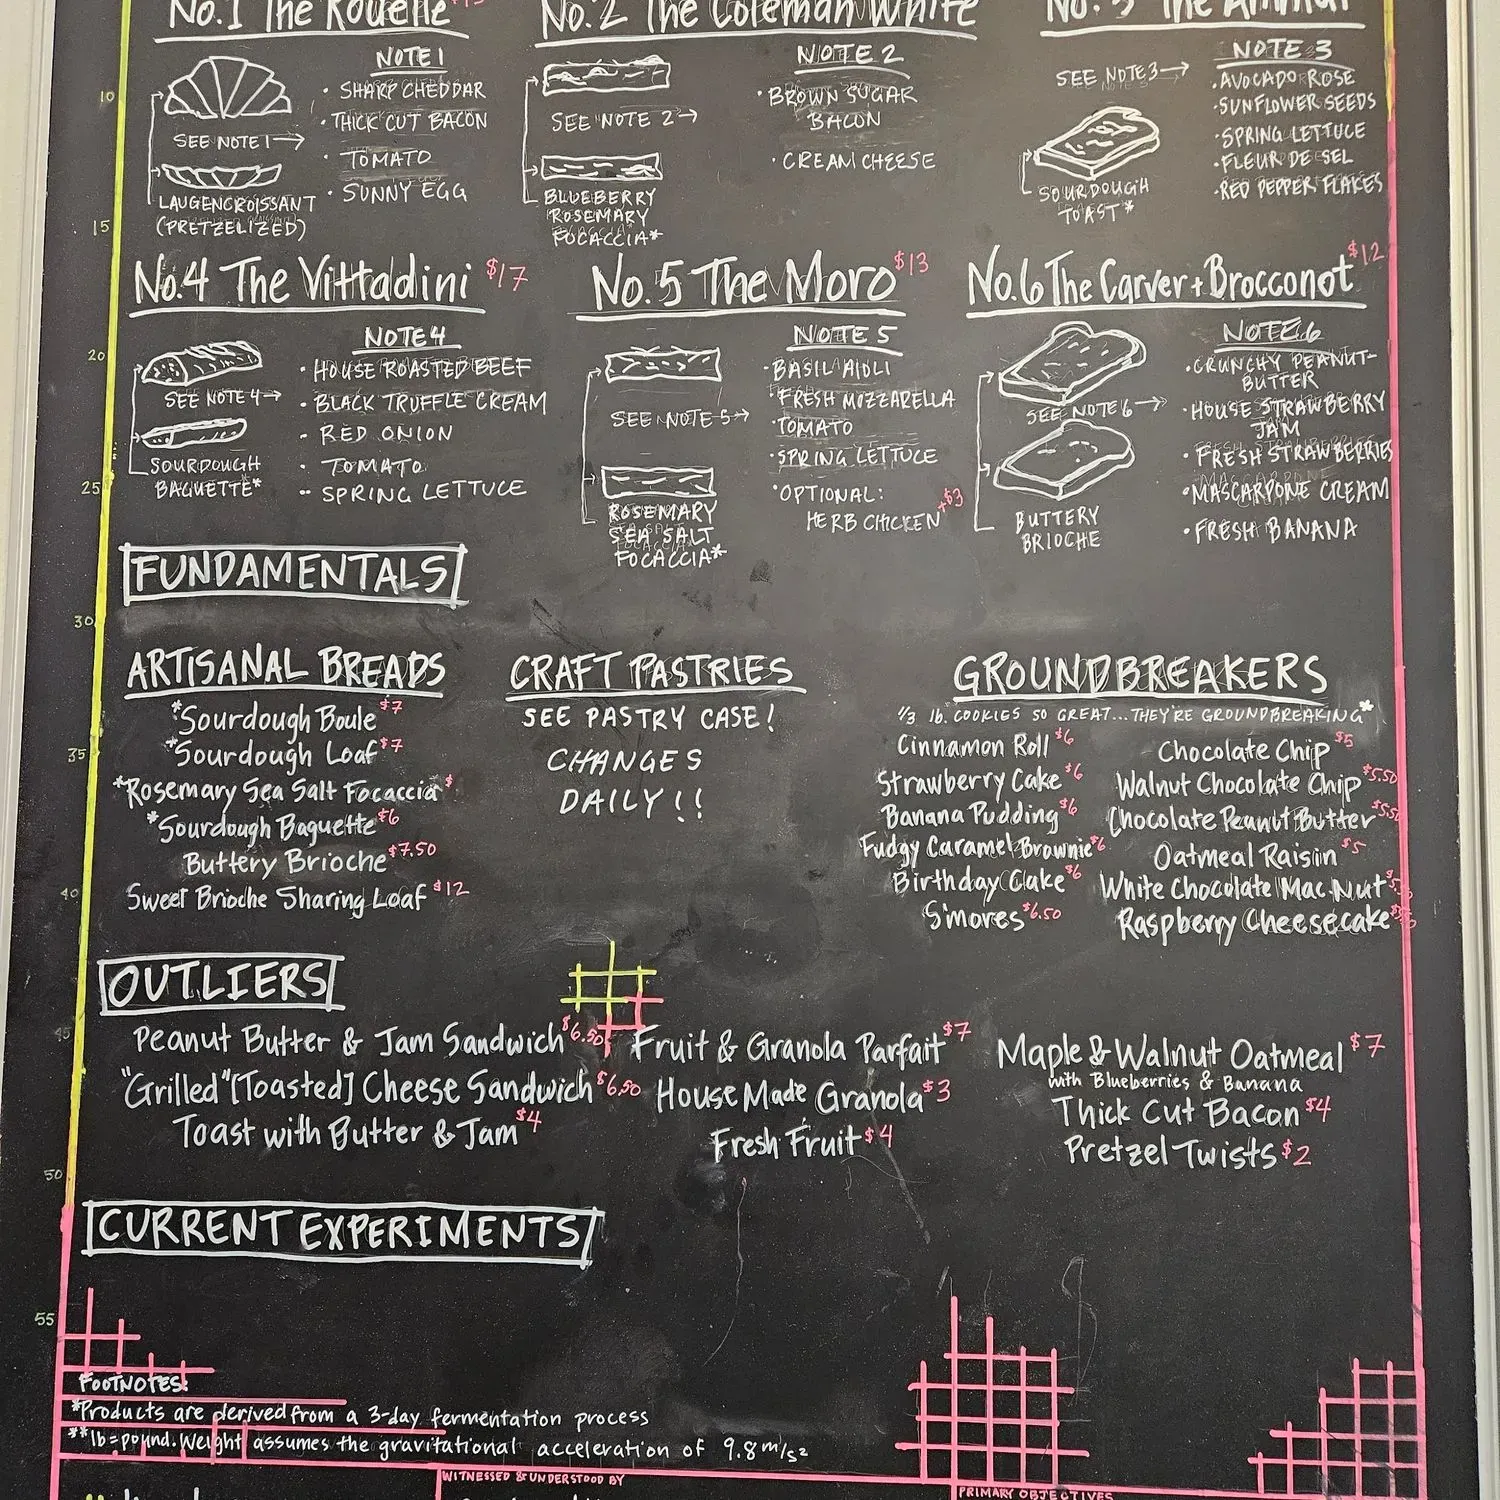 No.1 The Rouelle
No.2 The Coleman White
No.3 The
NOTE 1
• SHARP CHEDDAR
• THICK CUT BACON
• TOMATO
• SUNNY EGG
SEE NOTE 1
LAUGENCROISSANT
(PRETZELIZED)
NOTE 2
• BROWN SUGAR
BACON
• CREAM CHEESE
SEE NOTE 2
BLUEBERRY
ROSEMARY
FOCACCIA*
NOTE 3
• AVOCADO ROSE
• SUNFLOWER SEEDS
• SPRING LETTUCE
• FLEUR DE SEL
• RED PEPPER FLAKES
SEE NOTE 3
SOURDOUGH
TOAST*
10
15
No.4 The Vittadini $17
NOTE 4
• HOUSE ROASTED BEEF
• BLACK TRUFFLE CREAM
• RED ONION
• TOMATO
• SPRING LETTUCE
SEE NOTE 4
SOURDOUGH
BAGUETTE*
No.5 The Moro $13
NOTE 5
• BASIL AIOLI
• FRESH MOZZARELLA
• TOMATO
• SPRING LETTUCE
• OPTIONAL:
HERB CHICKEN +$3
SEE NOTE 5
ROSEMARY
SEA SALT
FOCACCIA*
No.6 The Carver + Brocconot $12
NOTE 6
• CRUNCHY PEANUT-
BUTTER
• HOUSE STRAWBERRY
JAM
• FRESH STRAWBERRIES
• MASCARPONE CREAM
• FRESH BANANA
SEE NOTE 6
BUTTERY
BRIOCHE
20
25
FUNDAMENTALS
30
ARTISANAL BREADS
*Sourdough Boule $7
*Sourdough Loaf $7
*Rosemary Sea Salt Focaccia $
*Sourdough Baguette $6
Buttery Brioche $7.50
Sweet Brioche Sharing Loaf $12
CRAFT PASTRIES
SEE PASTRY CASE!
CHANGES
DAILY!!
GROUNDBREAKERS
1/3 lb. COOKIES SO GREAT... THEY'RE GROUNDBREAKING*
Cinnamon Roll $6
Strawberry Cake $6
Banana Pudding $6
Fudgy Caramel Brownie $6
Birthday Cake $6
S'mores $6.50
Chocolate Chip $5
Walnut Chocolate Chip $5.50
Chocolate Peanut Butter $5.50
Oatmeal Raisin $5
White Chocolate Mac. Nut
Raspberry Cheesecake
35
40
OUTLIERS
45
Peanut Butter & Jam Sandwich $6.50
"Grilled" [Toasted] Cheese Sandwich $6.50
Toast with Butter & Jam $4
Fruit & Granola Parfait $7
House Made Granola $3
Fresh Fruit $4
Maple & Walnut Oatmeal $7
with Blueberries & Banana
Thick Cut Bacon $4
Pretzel Twists $2
50
CURRENT EXPERIMENTS
55
FOOTNOTES:
*Products are derived from a 3-day fermentation process
**lb = pound. Weight assumes the gravitational acceleration of 9.8 m/s²
WITNESSED & UNDERSTOOD BY
PRIMARY OBJECTIVES